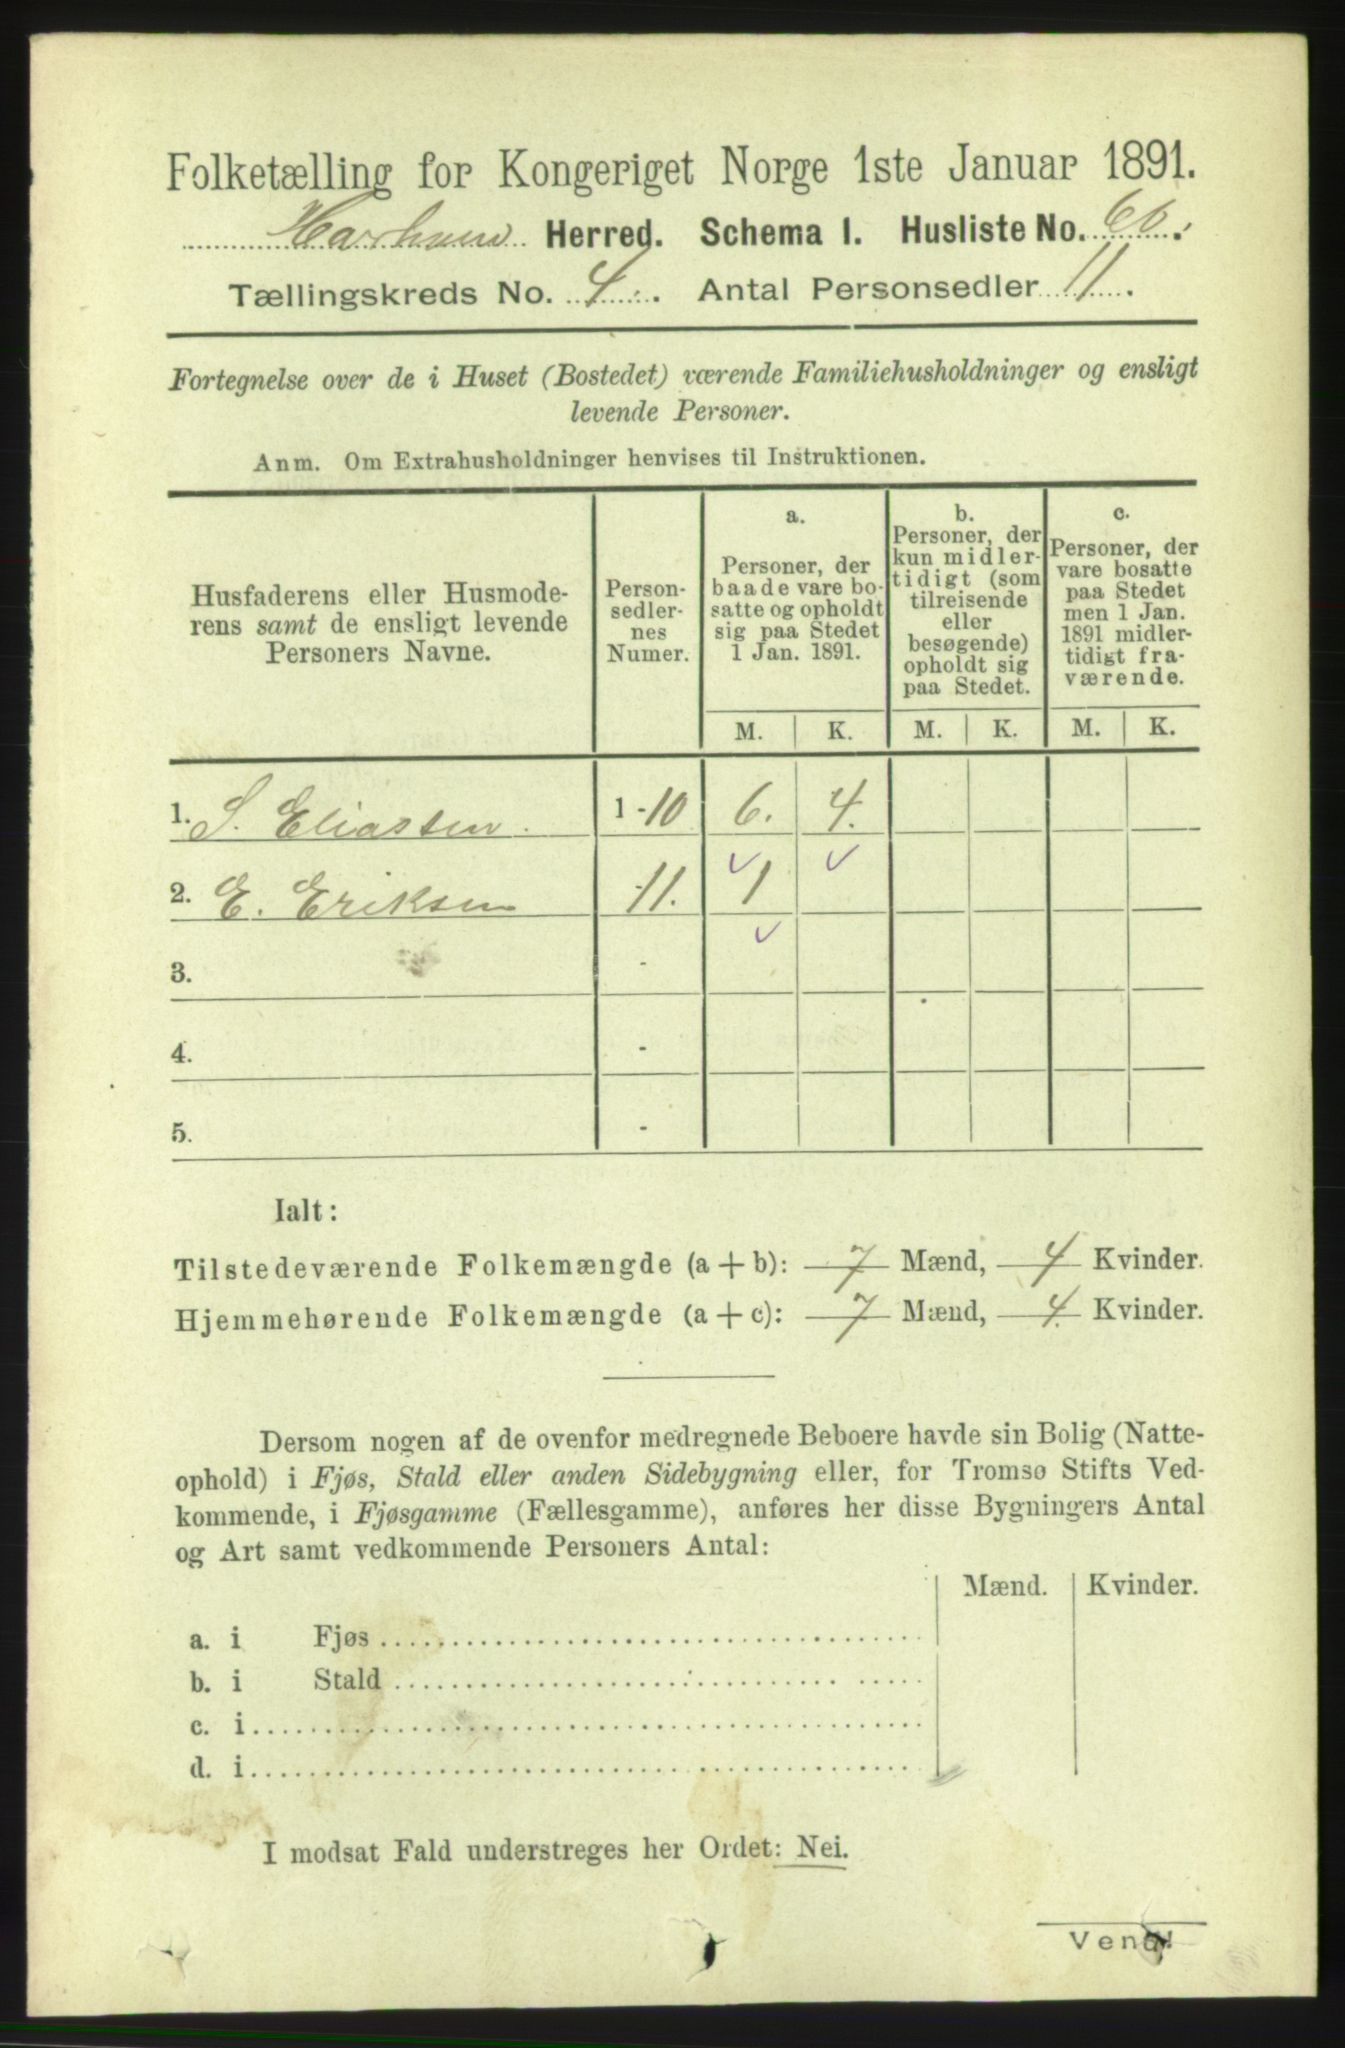 Folketælling for Kongeriget Norge 1ste Januar 1891.
Harham Herred. Schema I. Husliste No. 66.
Tællingskreds No. 4. Antal Personsedler 11.
Fortegnelse over de i Huset (Bostedet) værende Familiehusholdninger og ensligt
levende Personer.
Anm. Om Extrahusholdninger henvises til Instruktionen.
Husfaderens eller Husmode-
rens samt de ensligt levende
Personers Navne.
Person-
sedler-
nes
Numer.
a.
Personer, der
baade vare bo-
satte og opholdt
sig paa Stedet
1 Jan. 1891.
b.
Personer, der
kun midler-
tidigt (som
tilreisende
eller
besøgende)
opholdt sig
paa Stedet.
c.
Personer, der
vare bosatte
paa Stedet
men 1 Jan.
1891 midler-
tidigt fra-
værende.
M. K. M. K. M. K.
1. S. Eliassen. 1-10 6. 4.
2. E. Eriksen -11. 1
3. -
4. -
5. -
Ialt:
Tilstedeværende Folkemængde (a+b): 7 Mænd, 4 Kvinder.
Hjemmehørende Folkemængde (a+c): 7 Mænd, 4. Kvinder.
Dersom nogen af de ovenfor medregnede Beboere havde sin Bolig (Natte-
ophold) i Fjøs, Stald eller anden Sidebygning eller, for Tromsø Stifts Ved-
kommende, i Fjøsgamme (Fællesgamme), anføres her disse Bygningers Antal
og Art samt vedkommende Personers Antal:
Mænd. Kvinder.
a. i Fjøs
b. i Stald
c. i
d. i
I modsat Fald understreges her Ordet: Nei.
Vend!